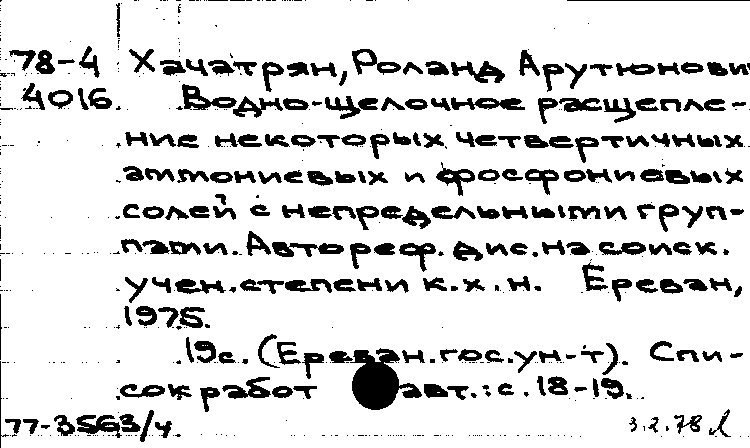 78-4 Хачатрян, Роланд Арутюнови
4016. Водно-щелочное расщепле-
ние некоторых четвертичных
аммониевых и фосфониевых
солей с непредельными груп-
пами. Автореф. дис. на соиск.
учен. степени к.х.н. Ереван,
1975.
19с. (Ереван. гос. ун-т). Спи-
сок работ авт.: с. 18-19.
77-3563/4 3.2.78